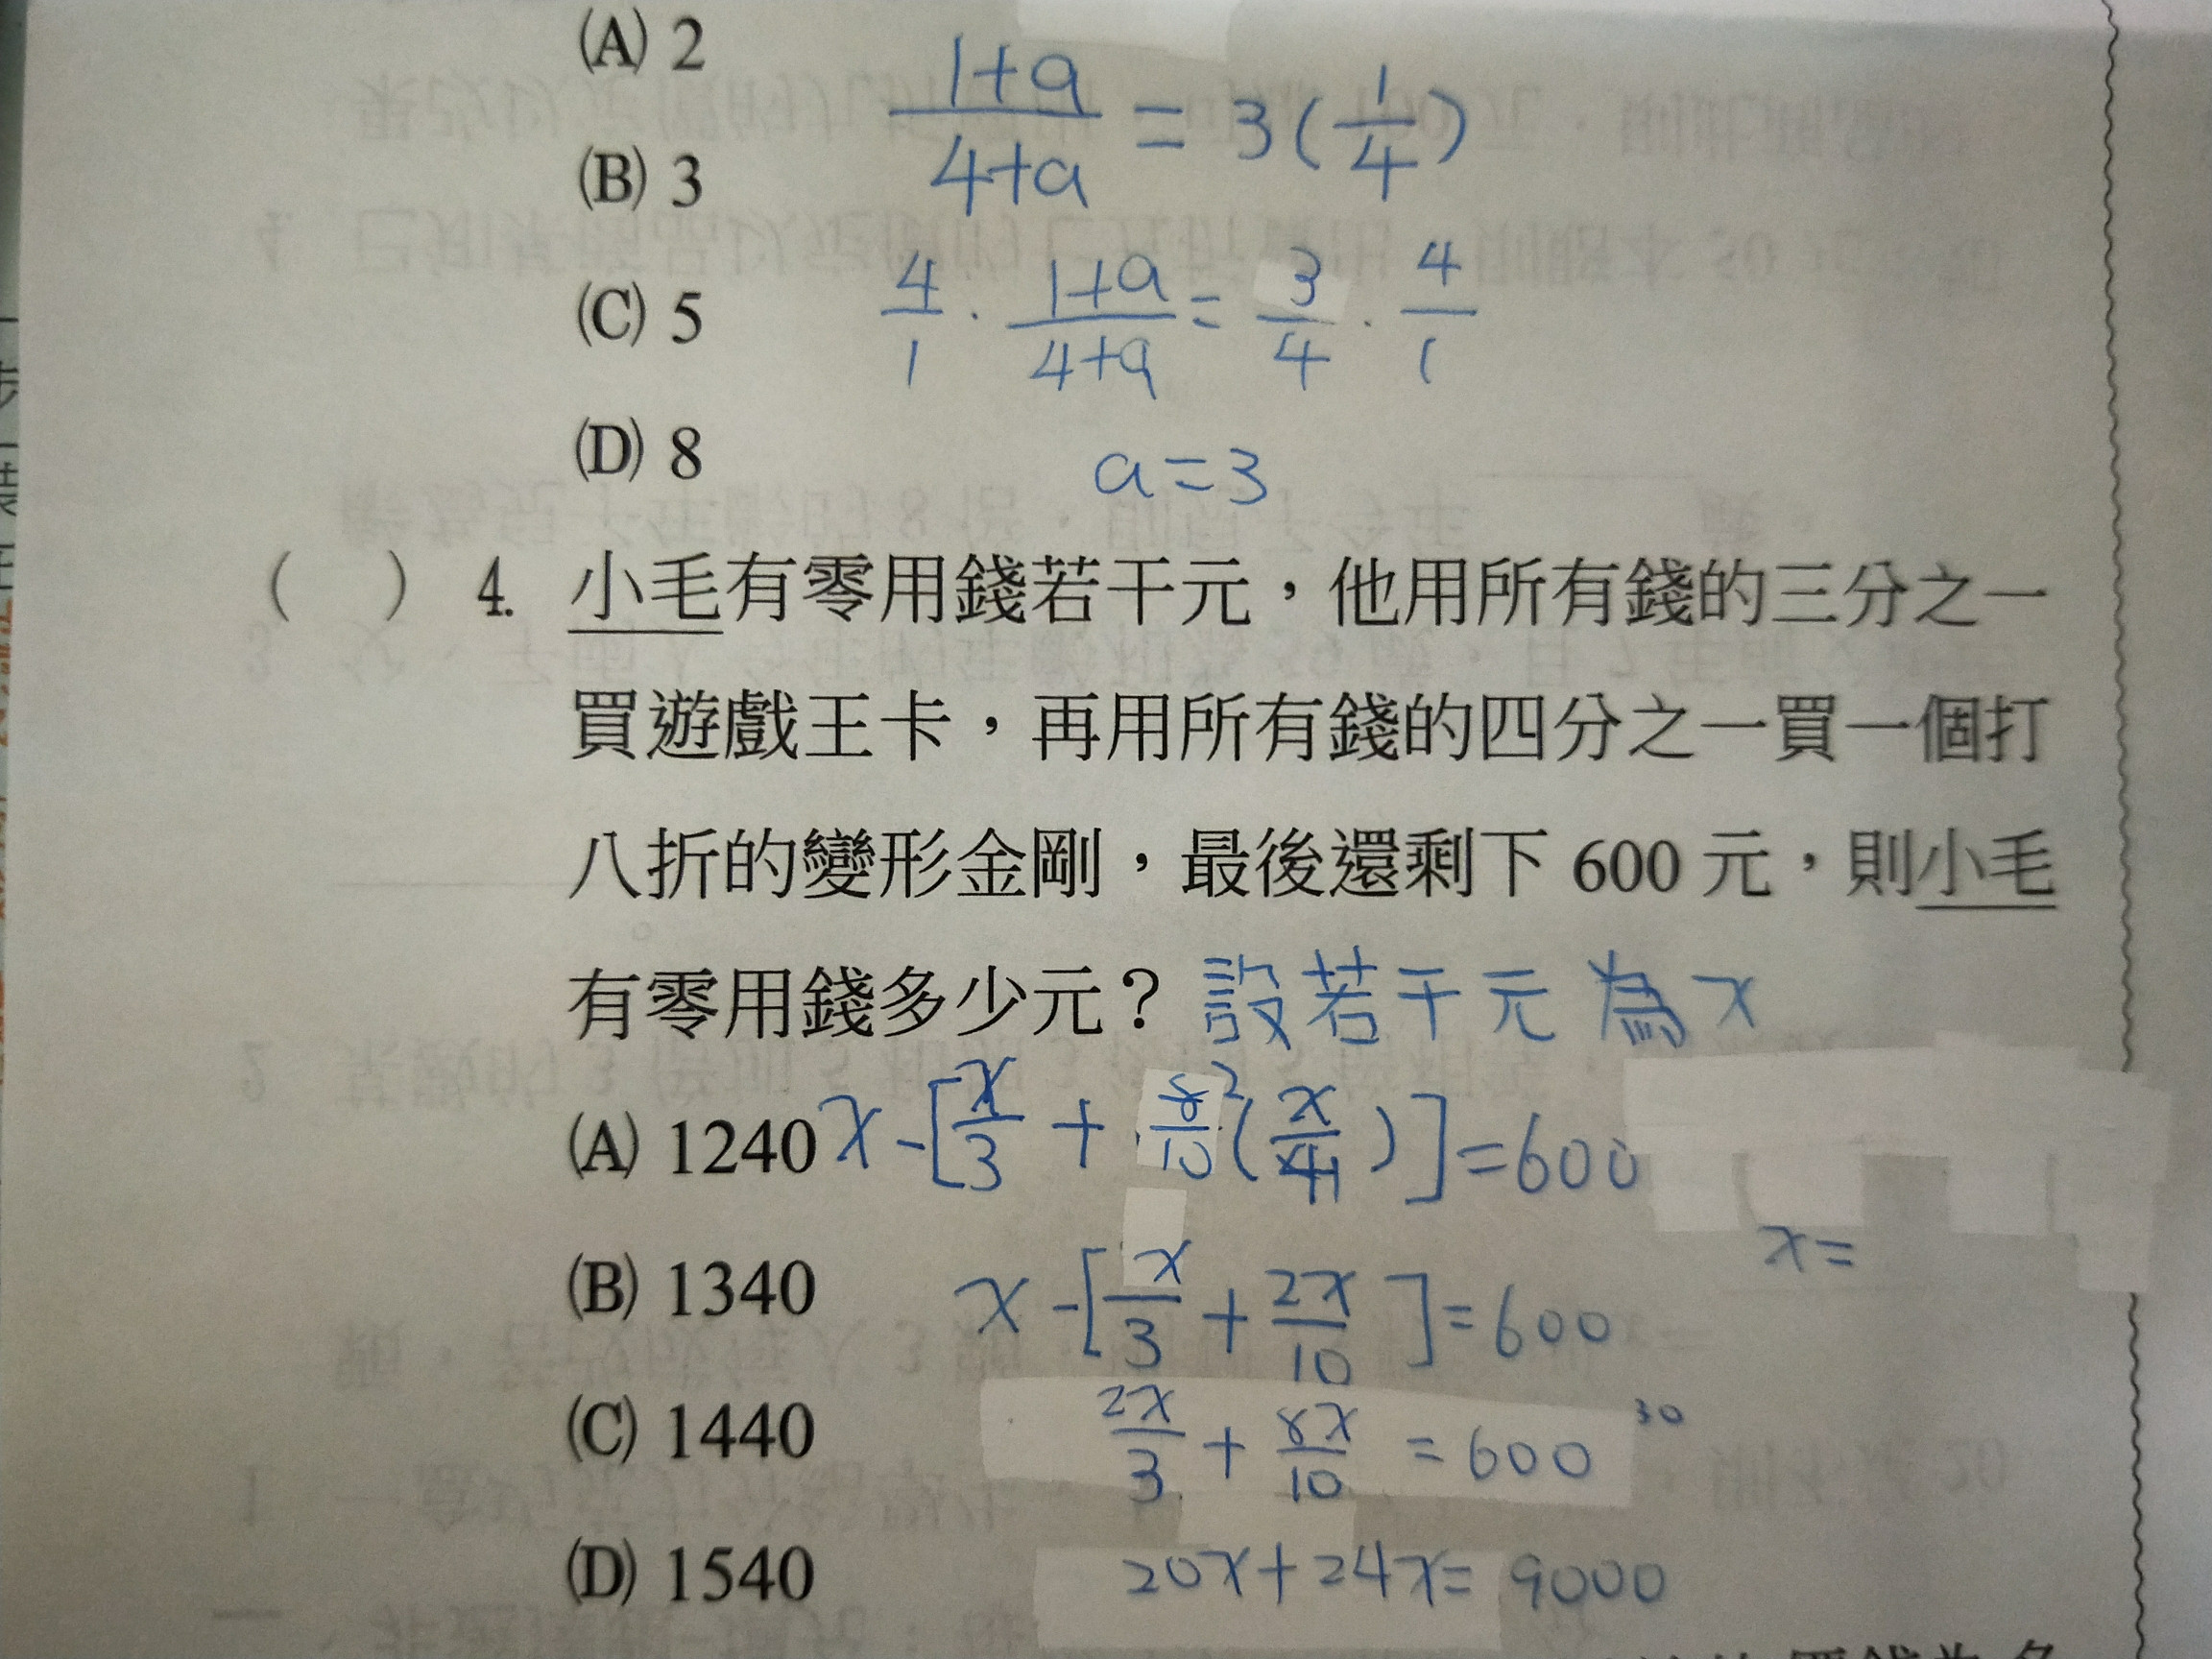 (A) 2
(B) 3
(C) 5
(D) 8
1+a / 4+a = 3(1/4)
4/1 · 1+a / 4+a = 3/4 · 4/1
a=3
( ) 4. 小毛有零用錢若干元，他用所有錢的三分之一
買遊戲王卡，再用所有錢的四分之一買一個打
八折的變形金剛，最後還剩下 600 元，則小毛
有零用錢多少元？ 設若干元為x
(A) 1240 x-[x/3 + 8/10 2(x/4)]=600
x=
(B) 1340 x-[x/3 + 2x/10]=600
(C) 1440 2x/3 + 8x/10 =600 30
(D) 1540 20x+24x=9000